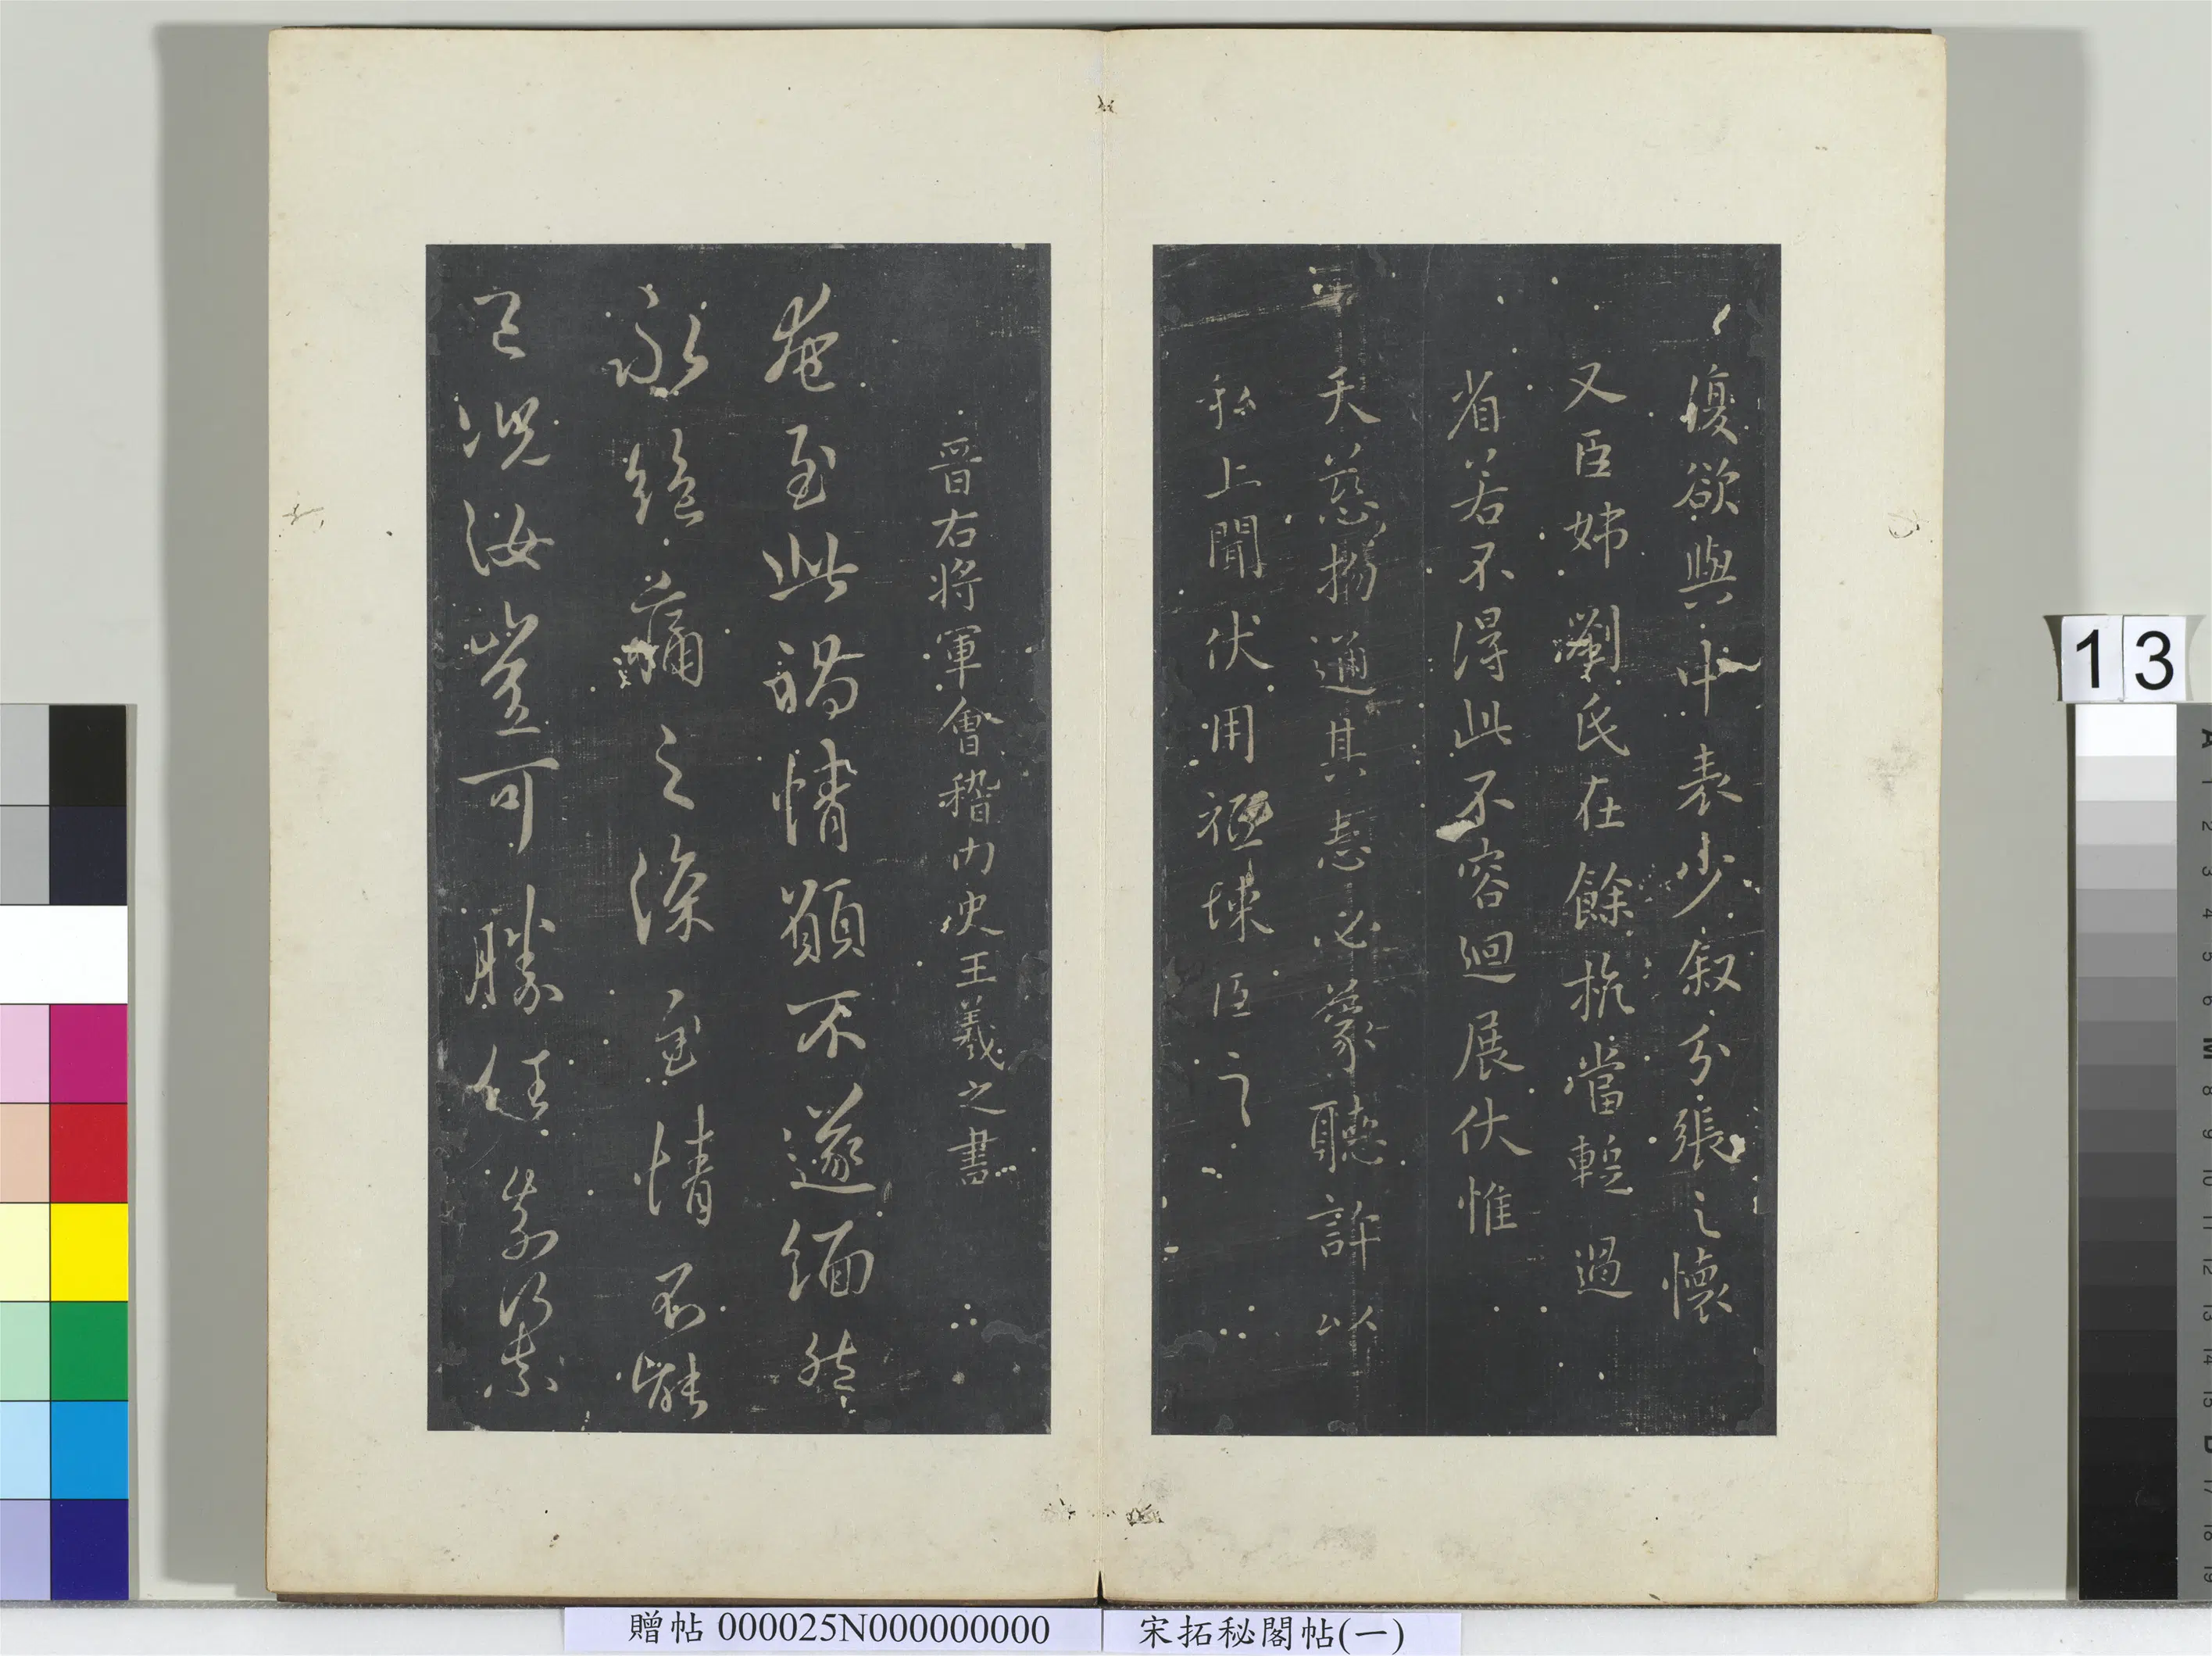 復欲與中表少叙分張之懷
又臣姊劉氏在餘杭當蹔過
省若不得此不容迴展伏惟
天慈通其志必蒙聽許以
私上聞伏用祗悚臣之
晉右將軍會稽內史王羲之書
奄至此禍情願不遂緬然
永絕痛之深至情不能
已況汝豈可勝任奈何
13
贈帖 000025N000000000
宋拓秘閣帖(一)